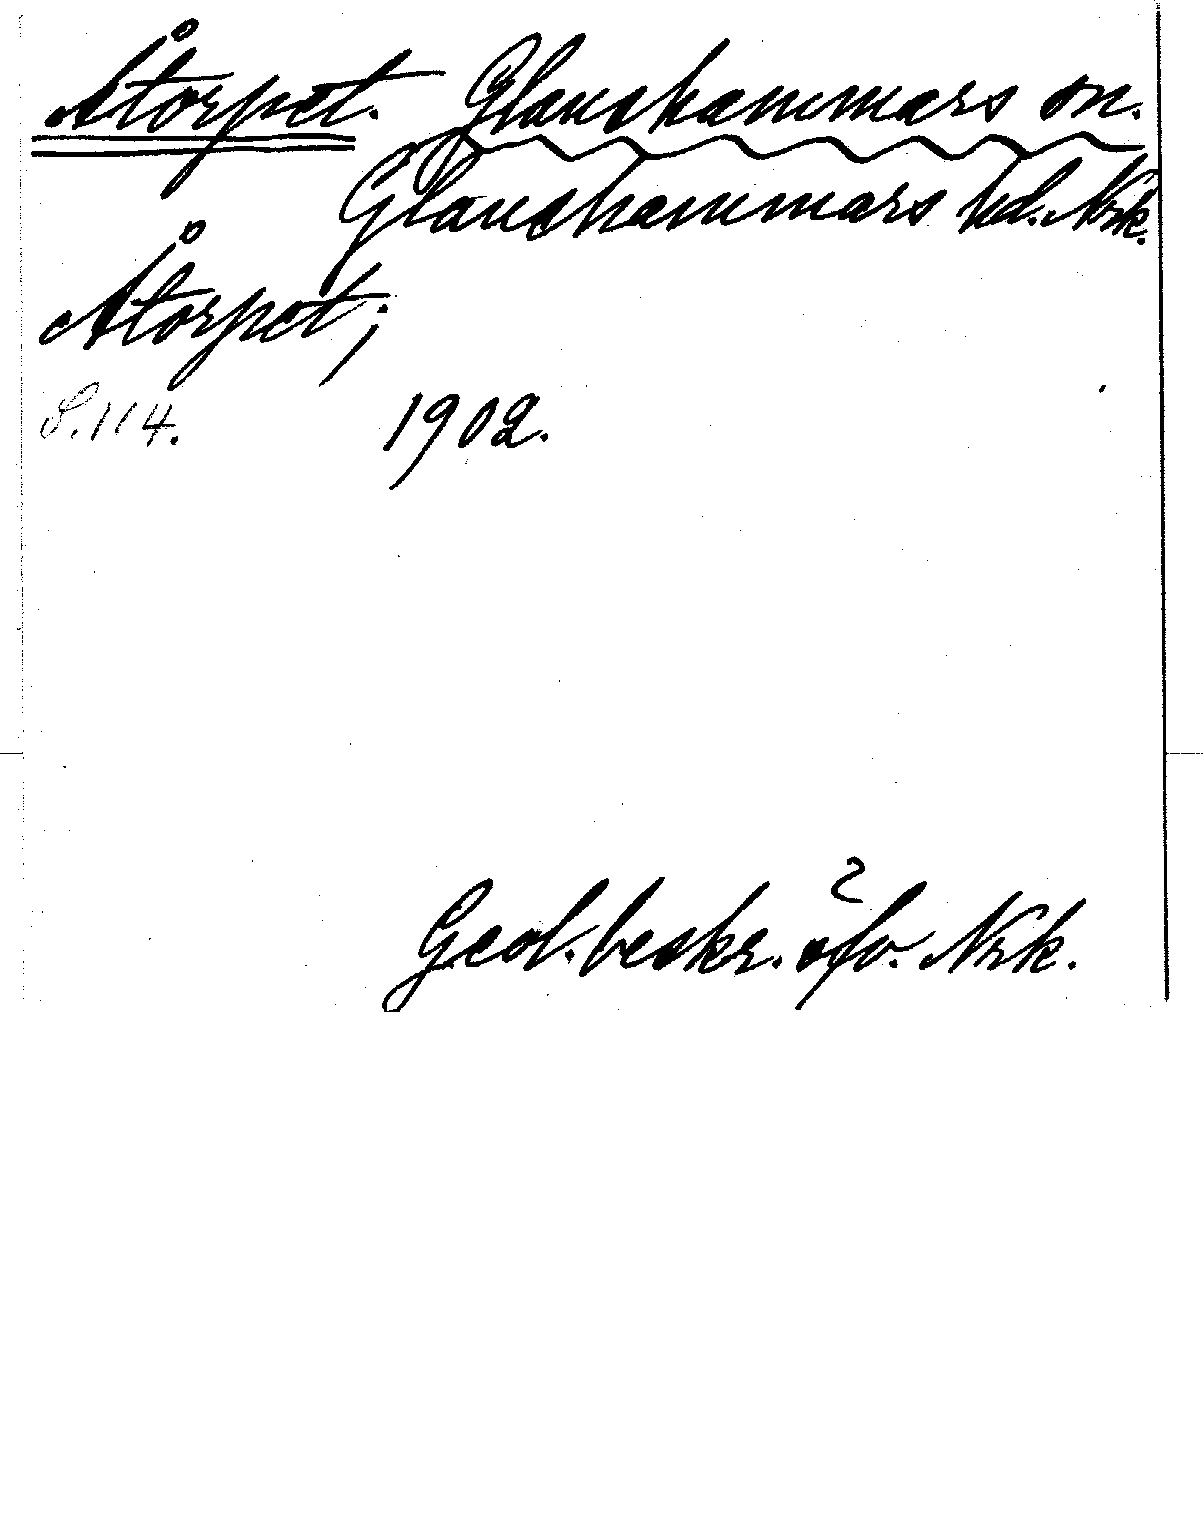 Åtorpet. Glanshammars sn.
Glanshammars hd. Nrk.
Åtorpet;
S. 114. 1902.
Geol. beskr. öfv. Nrk.